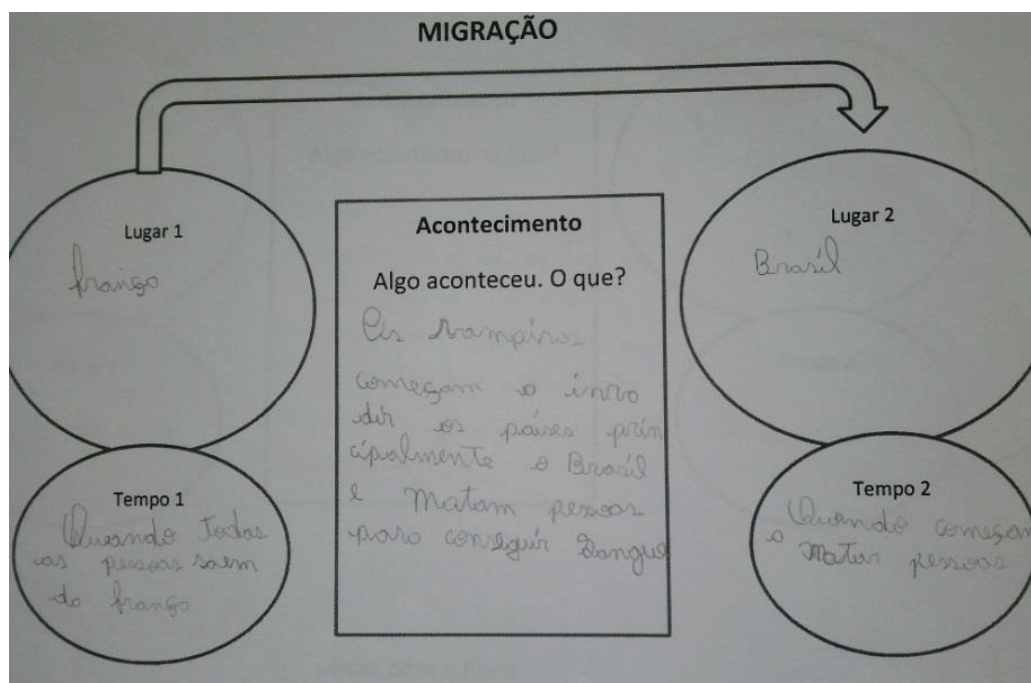 MIGRAÇÃO
Lugar 1
frança
Tempo 1
Quando todas
as pessoas saem
da frança
Acontecimento
Algo aconteceu. O que?
Os Vampiros
começam a inva
dir os países prin
cipalmente o Brasil
e Matam pessoas
para conseguir Sangue
Lugar 2
Brasil
Tempo 2
Quando começam
a Matar pessoas